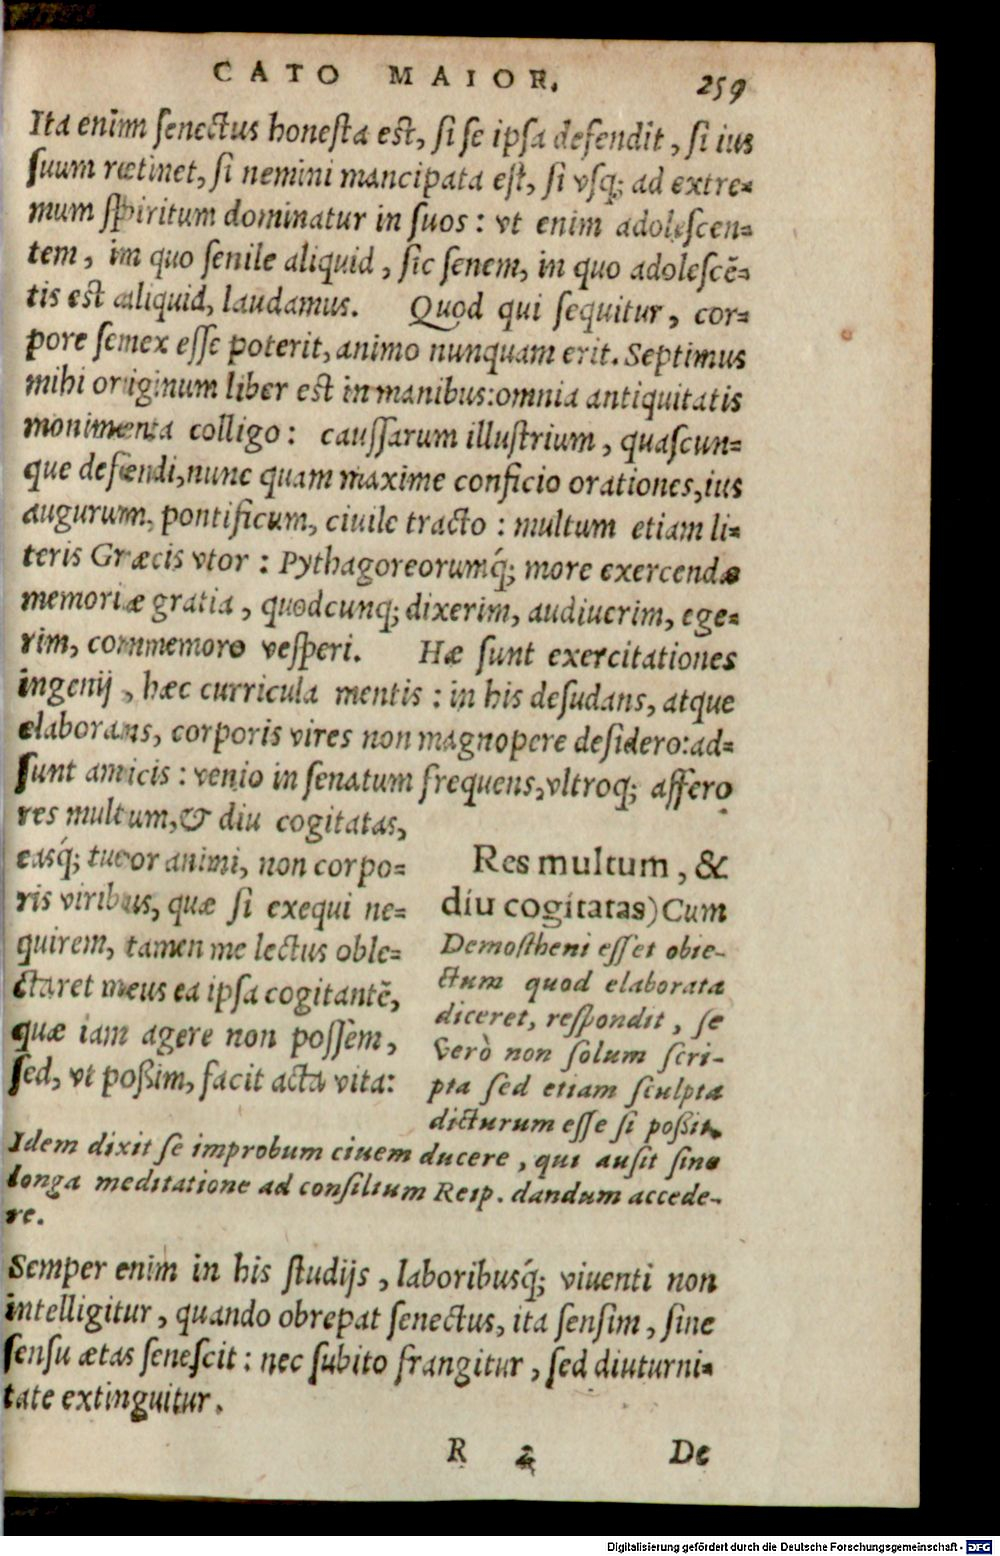 CATO MAIOR. 259
Ita enim senectus honesta est, si se ipsa defendit, si ius
suum retinet, si nemini mancipata est, si vsq; ad extre-
mum spiritum dominatur in suos: vt enim adolescen-
tem, in quo senile aliquid, sic senem, in quo adolescē-
tis est aliquid, laudamus. Quod qui sequitur, cor-
pore senex esse poterit, animo nunquam erit. Septimus
mihi originum liber est in manibus: omnia antiquitatis
monimenta colligo: caussarum illustrium, quascun-
que defendi, nunc quam maxime conficio orationes, ius
augurum, pontificum, ciuile tracto: multum etiam li-
teris Græcis vtor: Pythagoreorumq́; more exercendæ
memoriæ gratia, quodcunq; dixerim, audiuerim, ege-
rim, commemoro vesperi. Hæ sunt exercitationes
ingenij, hæc curricula mentis: in his desudans, atque
elaborans, corporis vires non magnopere desidero: ad-
sunt amicis: venio in senatum frequens, vltroq; affero
res multum, & diu cogitatas,
easq́; tueor animi, non corpo-
ris viribus, quæ si exequi ne-
quirem, tamen me lectus oble-
ctaret meus ea ipsa cogitantē,
quæ iam agere non possem,
sed, vt possim, facit acta vita:
Res multum, &
diu cogitatas) Cum
Demostheni esset obie-
ctum quod elaborata
diceret, respondit, se
verò non solum scri-
pta sed etiam sculpta
dicturum esse si possit.
Idem dixit se improbum ciuem ducere, qui ausit sine
longa meditatione ad consilium Reip. dandum accede-
re.
Semper enim in his studijs, laboribusq́; viuenti non
intelligitur, quando obrepat senectus, ita sensim, sine
sensu ætas senescit: nec subito frangitur, sed diuturni-
tate extinguitur.
R 2 De
Digitalisierung gefördert durch die Deutsche Forschungsgemeinschaft - DFG